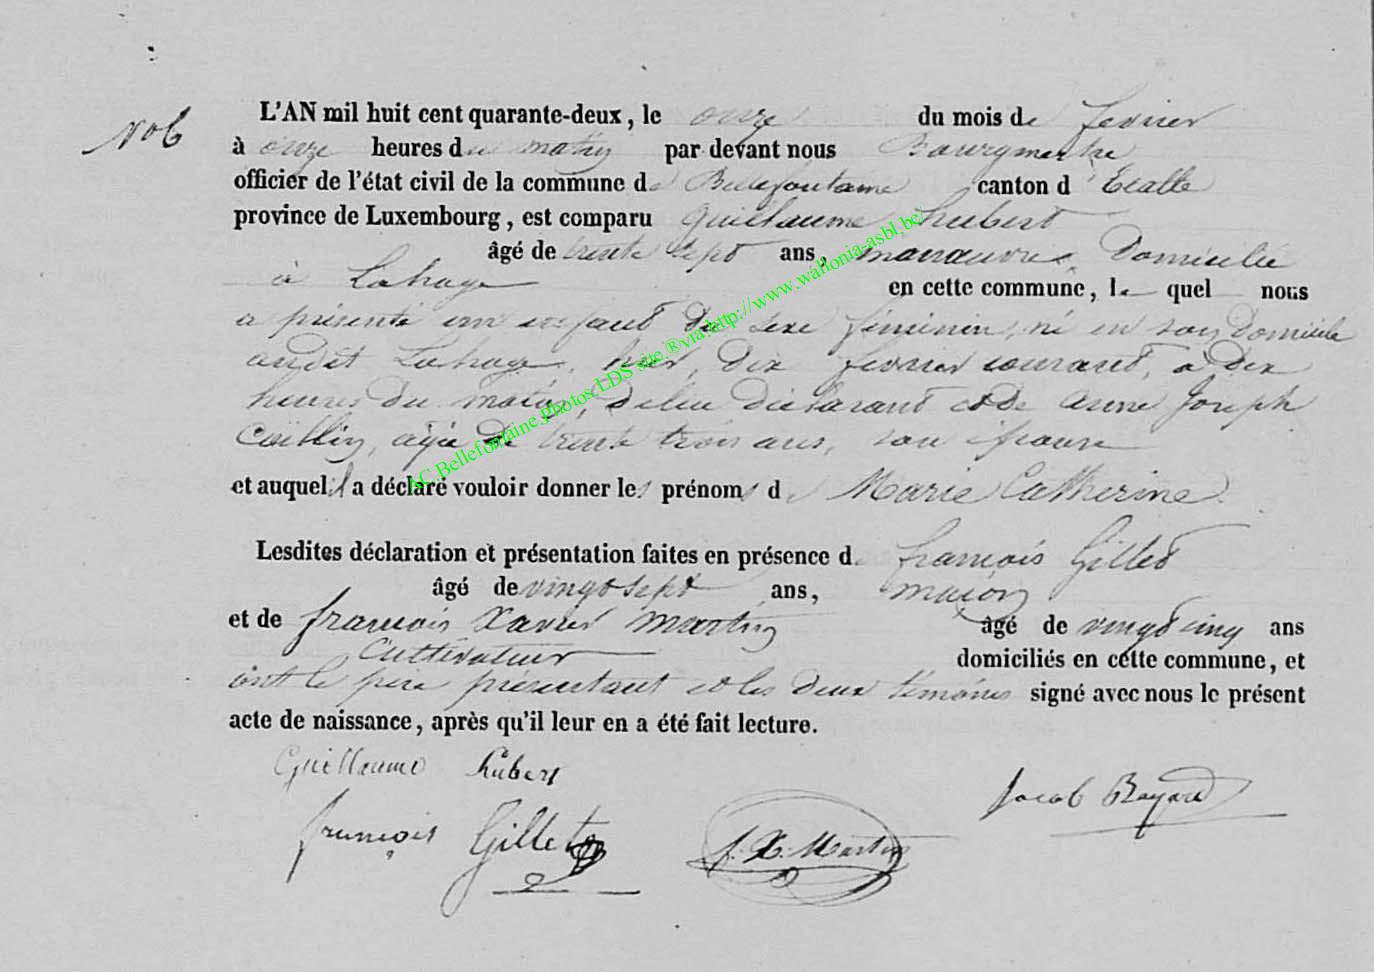 N° 6
L'AN mil huit cent quarante-deux, le onze du mois de fevrier
à onze heures du matin par devant nous Bourgmestre
officier de l'état civil de la commune de Bellefontaine canton d'Etalle
province de Luxembourg, est comparu Guillaume hubert
âgé de trente sept ans, manœuvre, Domicilié
à Lahage en cette commune, le quel nous
a présenté un enfant du sexe féminin, né en son Domicile
audit Lahage, hier, dix fevrier courant, à dix
heures du matin, de lui déclarant et de anne Joseph
Caillin, agée de trente trois ans, son épouse
et auquel il a déclaré vouloir donner les prénoms de Marie Catherine.
Lesdites déclaration et présentation faites en présence de françois Gillet
âgé de vingt sept ans, maçon
et de françois Xavier Martin âgé de vingt cinq ans
Cultivateur domiciliés en cette commune, et
ont le pere présentant et les deux témoins signé avec nous le présent
acte de naissance, après qu'il leur en a été fait lecture.
Guillaume hubert
Jacob Bayard
françois Gillet
f. X. Martin
AC.Bellefontaine.Photos.LDS site.®via:http://www.wallonia-asbl.be/